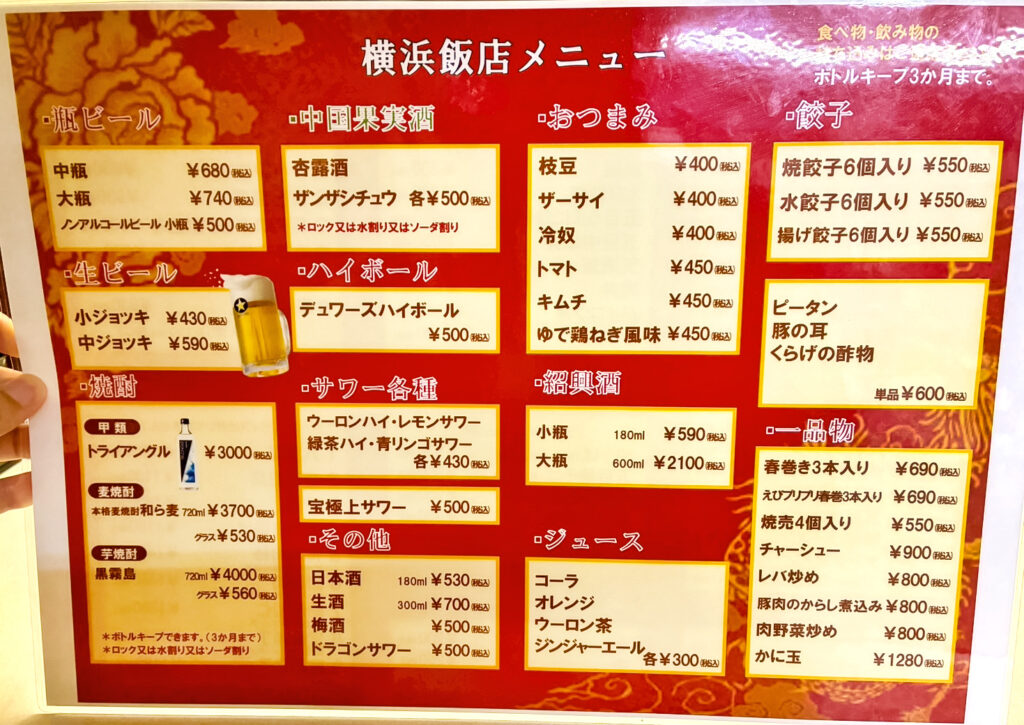 横浜飯店メニュー
食べ物・飲み物の
ボトルキープ3か月まで。
・瓶ビール
中瓶 ¥680(税込)
大瓶 ¥740(税込)
ノンアルコールビール 小瓶 ¥500(税込)
・生ビール
小ジョッキ ¥430(税込)
中ジョッキ ¥590(税込)
・焼酎
甲類
トライアングル ¥3000(税込)
麦焼酎
本格麦焼酎和ら麦 720ml ¥3700(税込)
グラス¥530(税込)
芋焼酎
黒霧島 720ml ¥4000(税込)
グラス¥560(税込)
*ボトルキープできます。(3か月まで)
*ロック又は水割り又はソーダ割り
・中国果実酒
杏露酒
ザンザシチュウ 各¥500(税込)
*ロック又は水割り又はソーダ割り
・ハイボール
デュワーズハイボール
¥500(税込)
・サワー各種
ウーロンハイ・レモンサワー
緑茶ハイ・青リンゴサワー
各¥430(税込)
宝極上サワー ¥500(税込)
・その他
日本酒 180ml ¥530(税込)
生酒 300ml ¥700(税込)
梅酒 ¥500(税込)
ドラゴンサワー ¥500(税込)
・おつまみ
枝豆 ¥400(税込)
ザーサイ ¥400(税込)
冷奴 ¥400(税込)
トマト ¥450(税込)
キムチ ¥450(税込)
ゆで鶏ねぎ風味 ¥450(税込)
・紹興酒
小瓶 180ml ¥590(税込)
大瓶 600ml ¥2100(税込)
・ジュース
コーラ
オレンジ
ウーロン茶
ジンジャーエール
各¥300(税込)
・餃子
焼餃子6個入り ¥550(税込)
水餃子6個入り ¥550(税込)
揚げ餃子6個入り ¥550(税込)
ピータン
豚の耳
くらげの酢物
単品¥600(税込)
・一品物
春巻き3本入り ¥690(税込)
えびプリプリ春巻3本入り ¥690(税込)
焼売4個入り ¥550(税込)
チャーシュー ¥900(税込)
レバ炒め ¥800(税込)
豚肉のからし煮込み¥800(税込)
肉野菜炒め ¥800(税込)
かに玉 ¥1280(税込)